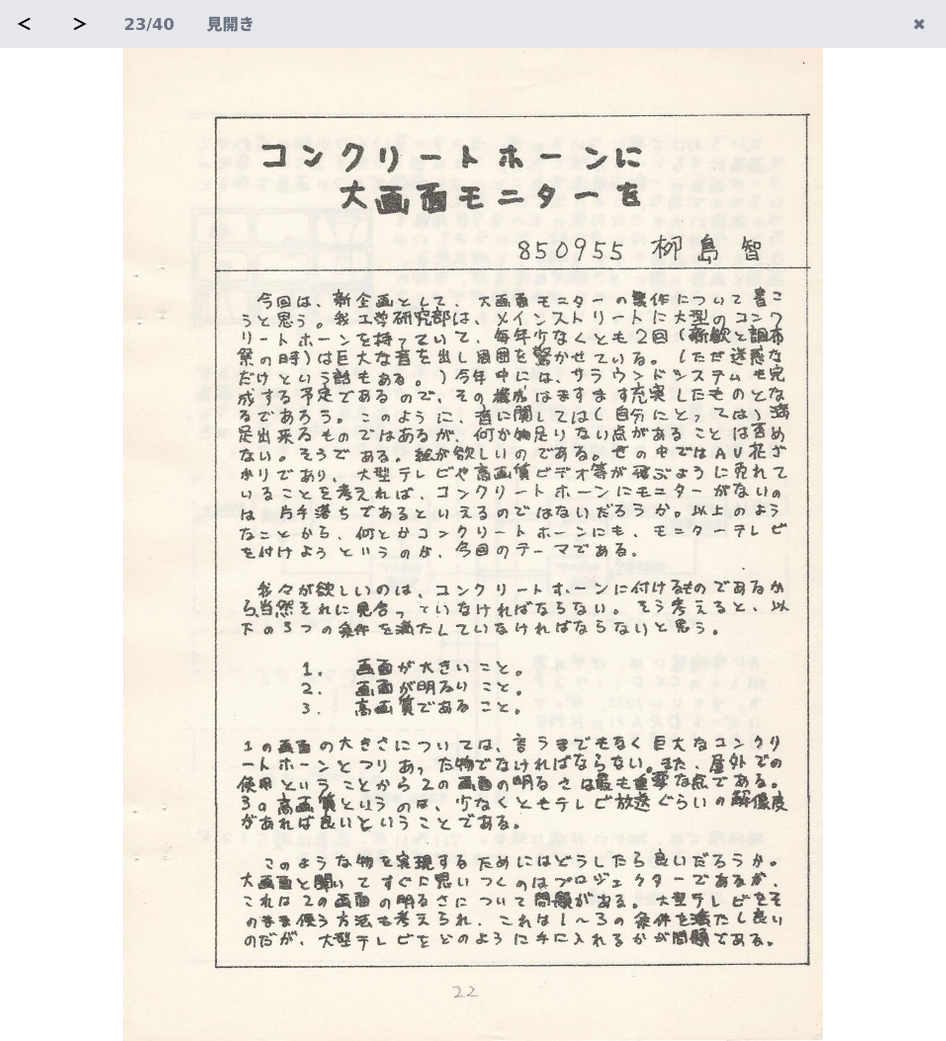 < > 23/40 見開き ✖
コンクリートホーンに
大画面モニターを
850955 柳島 智
今回は、新企画として、大画面モニターの製作について書こ
うと思う。我工学研究部は、メインストリートに大型のコンク
リートホーンを持っていて、毎年少なくとも2回(新歓と調布
祭の時)は巨大な音を出し周囲を驚かせている。(ただ迷惑な
だけという話もある。)今年中には、サラウンドシステムも完
成する予定であるので、その機成はますます充実したものとな
るであろう。このように、音に関しては(自分にとっては)満
足出来るものではあるが、何か物足りない点があることは否め
ない。そうである。絵が欲しいのである。世の中ではAV花ざ
かりであり、大型テレビや高画質ビデオ等が飛ぶように売れて
いることを考えれば、コンクリートホーンにモニターがないの
は、片手落ちであるといえるのではないだろうか。以上のよう
なことから、何とかコンクリートホーンにも、モニターテレビ
を付けようというのが、今回のテーマである。
我々が欲しいのは、コンクリートホーンに付けるものであるか
ら、当然それに見合っていなければならない。そう考えると、以
下の3つの条件を満たしていなければならないと思う。
1. 画面が大きいこと。
2. 画面が明るいこと。
3. 高画質であること。
1の画面の大きさについては、言うまでもなく巨大なコンクリ
ートホーンとつりあった物でなければならない。また、屋外での
使用ということから2の画面の明るさは最も重要な点である。
3の高画質というのは、少なくともテレビ放送ぐらいの解像度
があれば良いということである。
このような物を実現するためにはどうしたら良いだろうか。
大画面と聞いてすぐに思いつくのはプロジェクターであるが、
これは2の画面の明るさについて問題がある。大型テレビをそ
のまま使う方法も考えられ、これは1~3の条件を満たし良い
のだが、大型テレビをどのように手に入れるかが問題である。
22